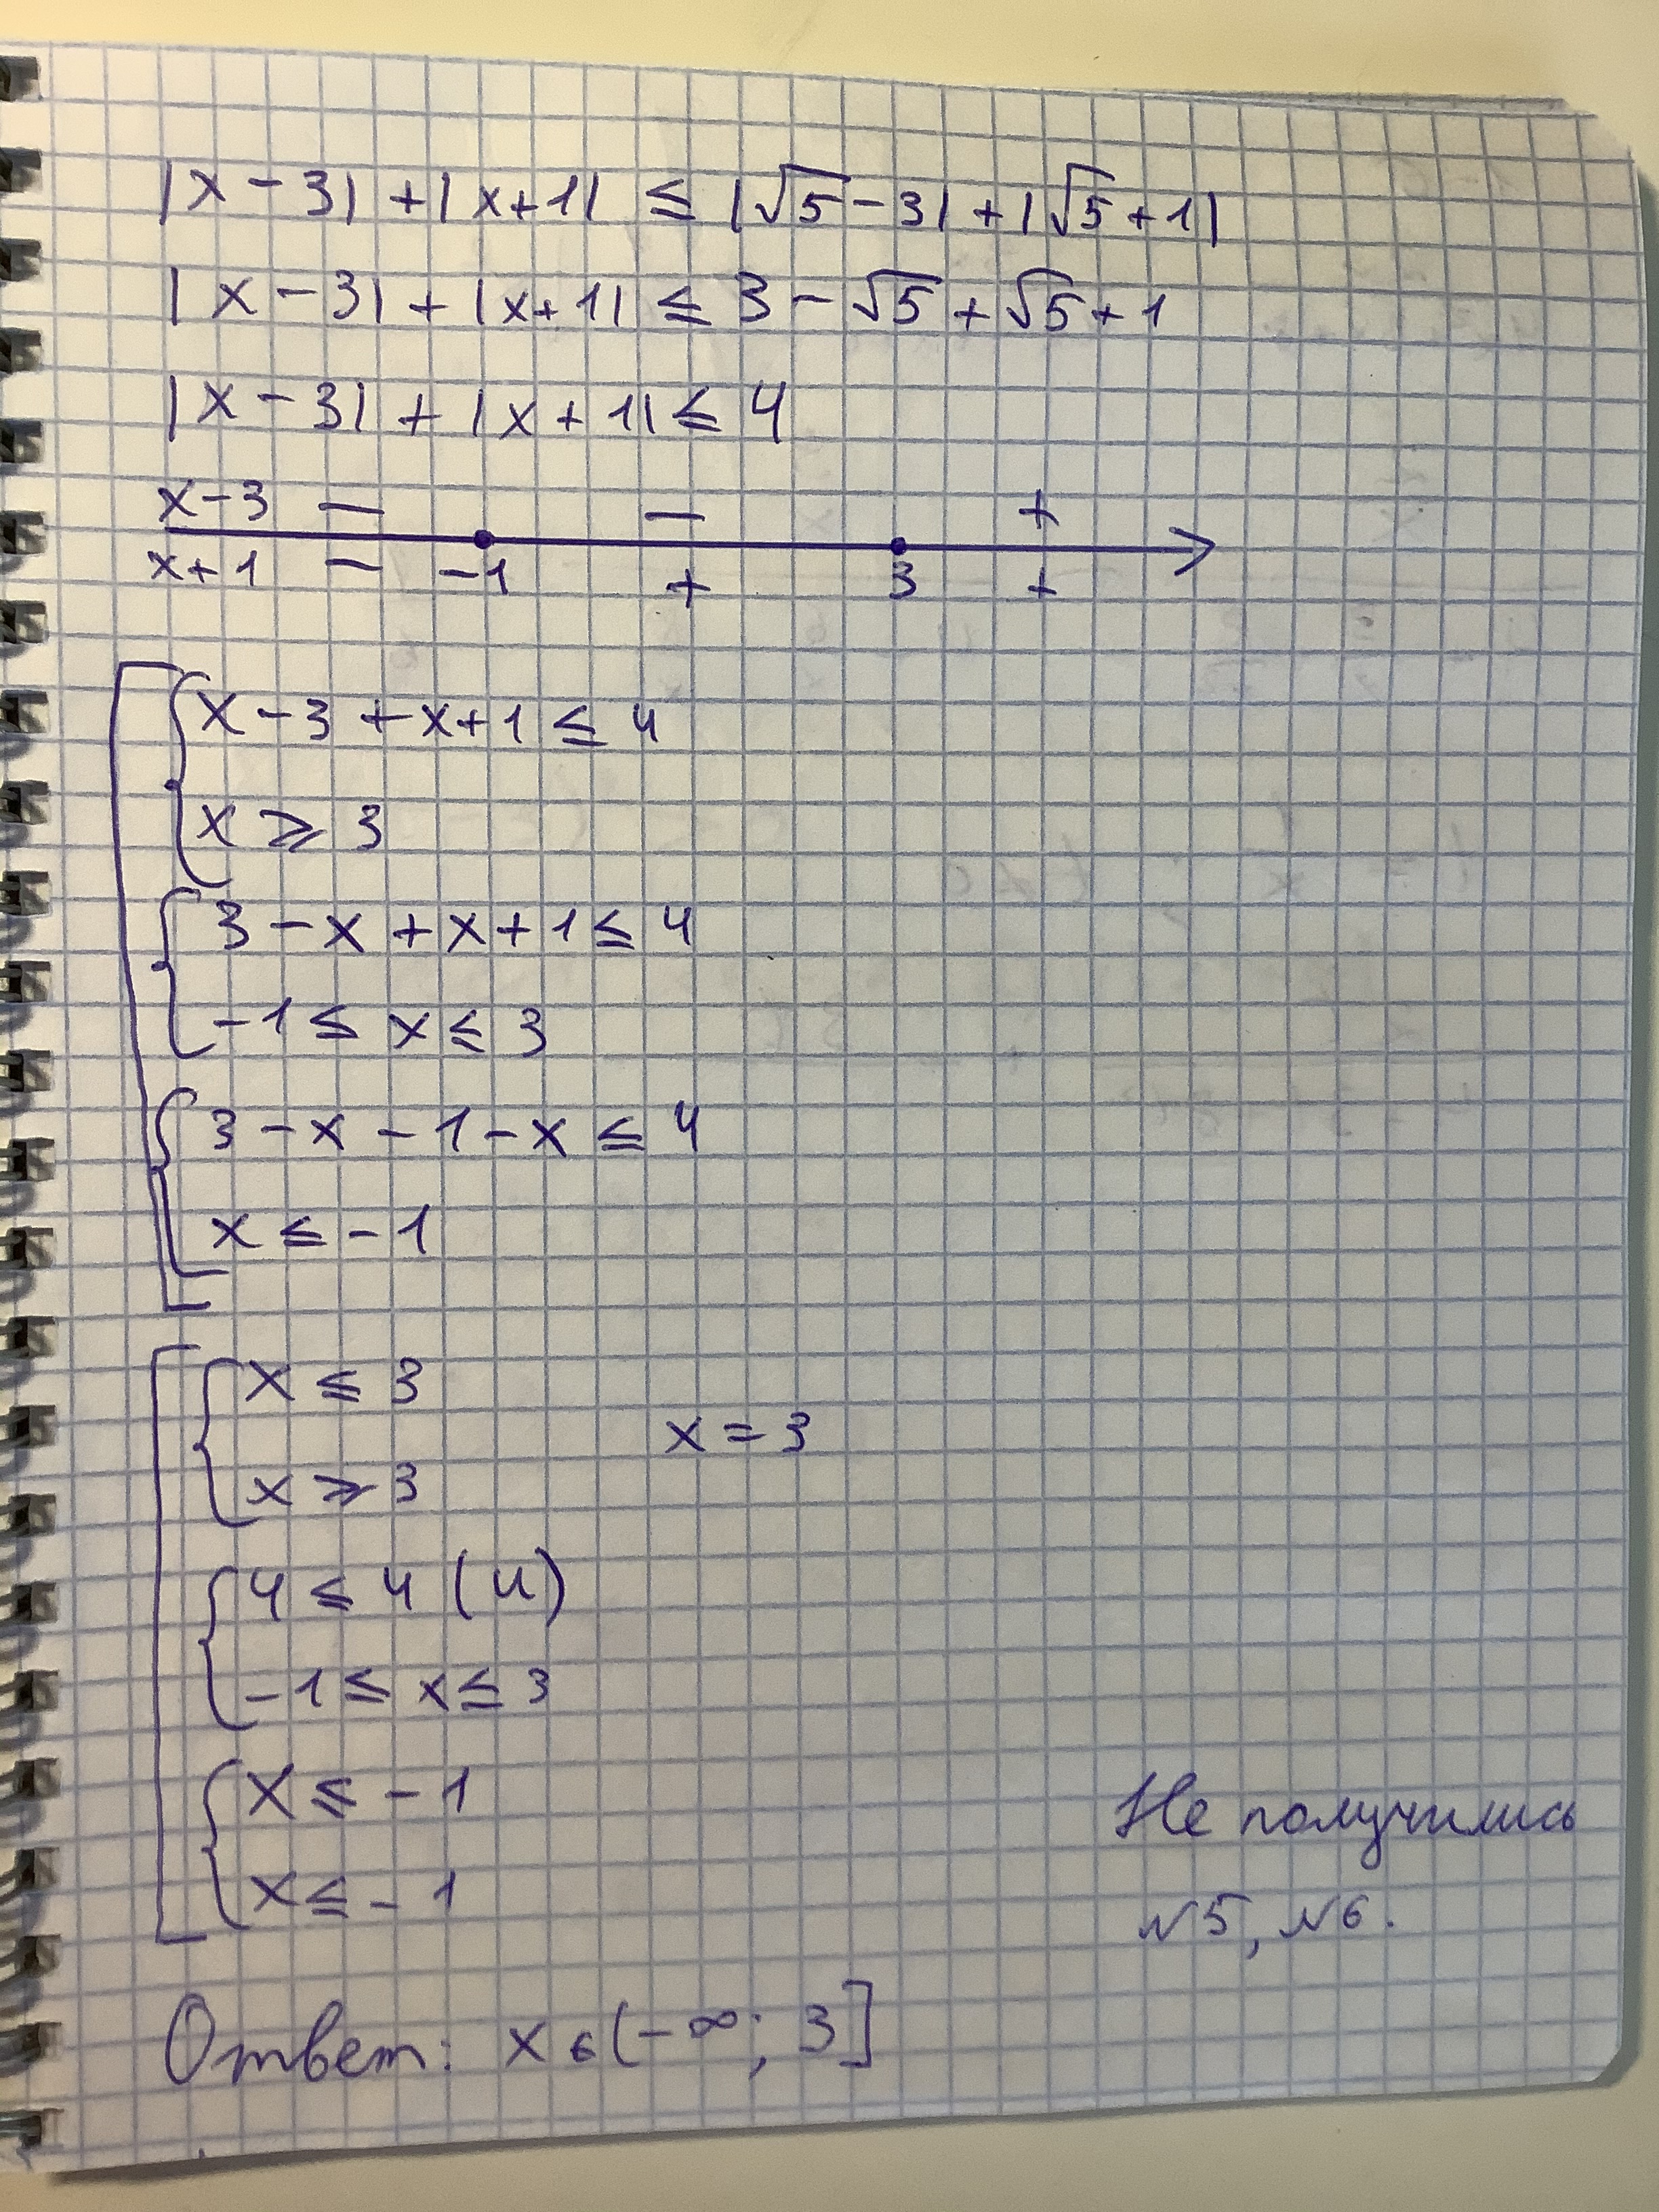 |x-3|+|x+1| ≤ |√5-3|+|√5+1|
|x-3|+|x+1| ≤ 3-√5+√5+1
|x-3|+|x+1| ≤ 4
x-3 — — +
x+1 — -1 + 3 +
x-3+x+1 ≤ 4
x ⩾ 3
3-x+x+1 ≤ 4
-1 ≤ x ≤ 3
3-x-1-x ≤ 4
x ≤ -1
x ≤ 3
x = 3
x ⩾ 3
4 ≤ 4 (и)
-1 ≤ x ≤ 3
x ≤ -1
x ≤ -1
Не получились
№5, №6.
Ответ: x ∈ (-∞; 3]